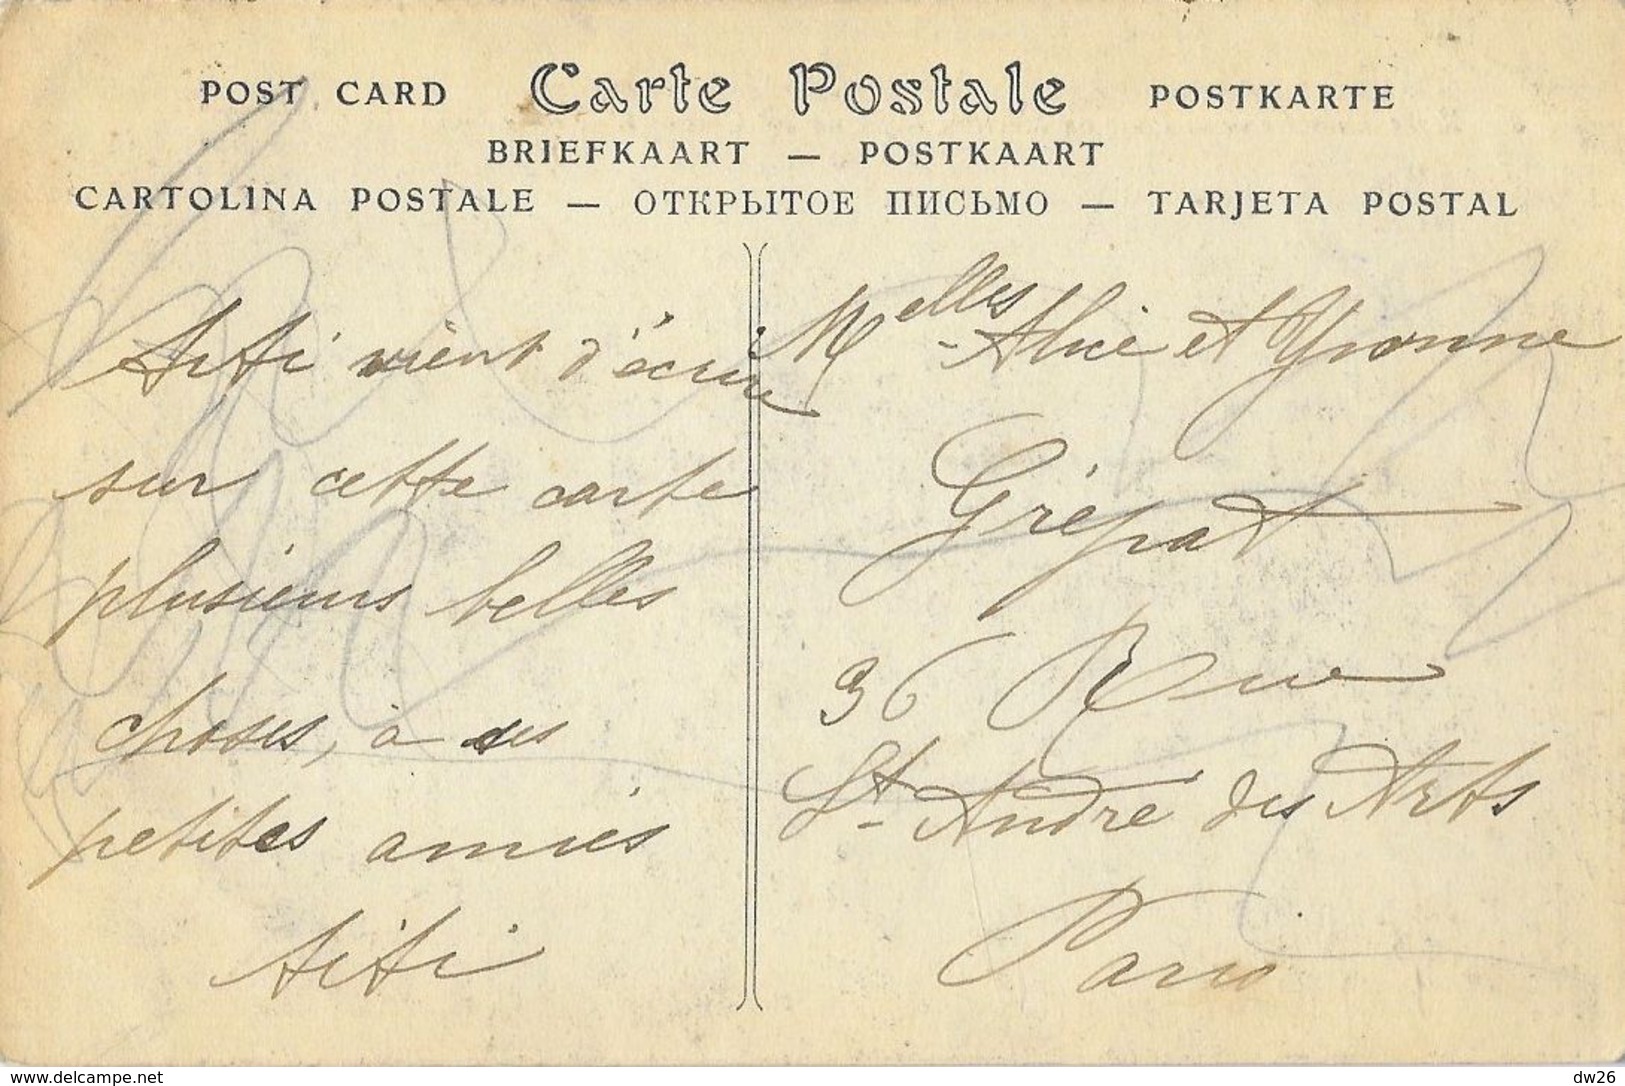 POST CARD Carte Postale POSTKARTE
BRIEFKAART — POSTKAART
CARTOLINA POSTALE — ОТКРЫТОЕ ПИСЬМО — TARJETA POSTAL
titi vient d'écrire
sur cette carte
plusieurs belles
choses, à ses
petites amies
titi
Melles Alice et Yvonne
Grépat
36 Rue
St André des Arts
Paris
www.delcampe.net
dw26